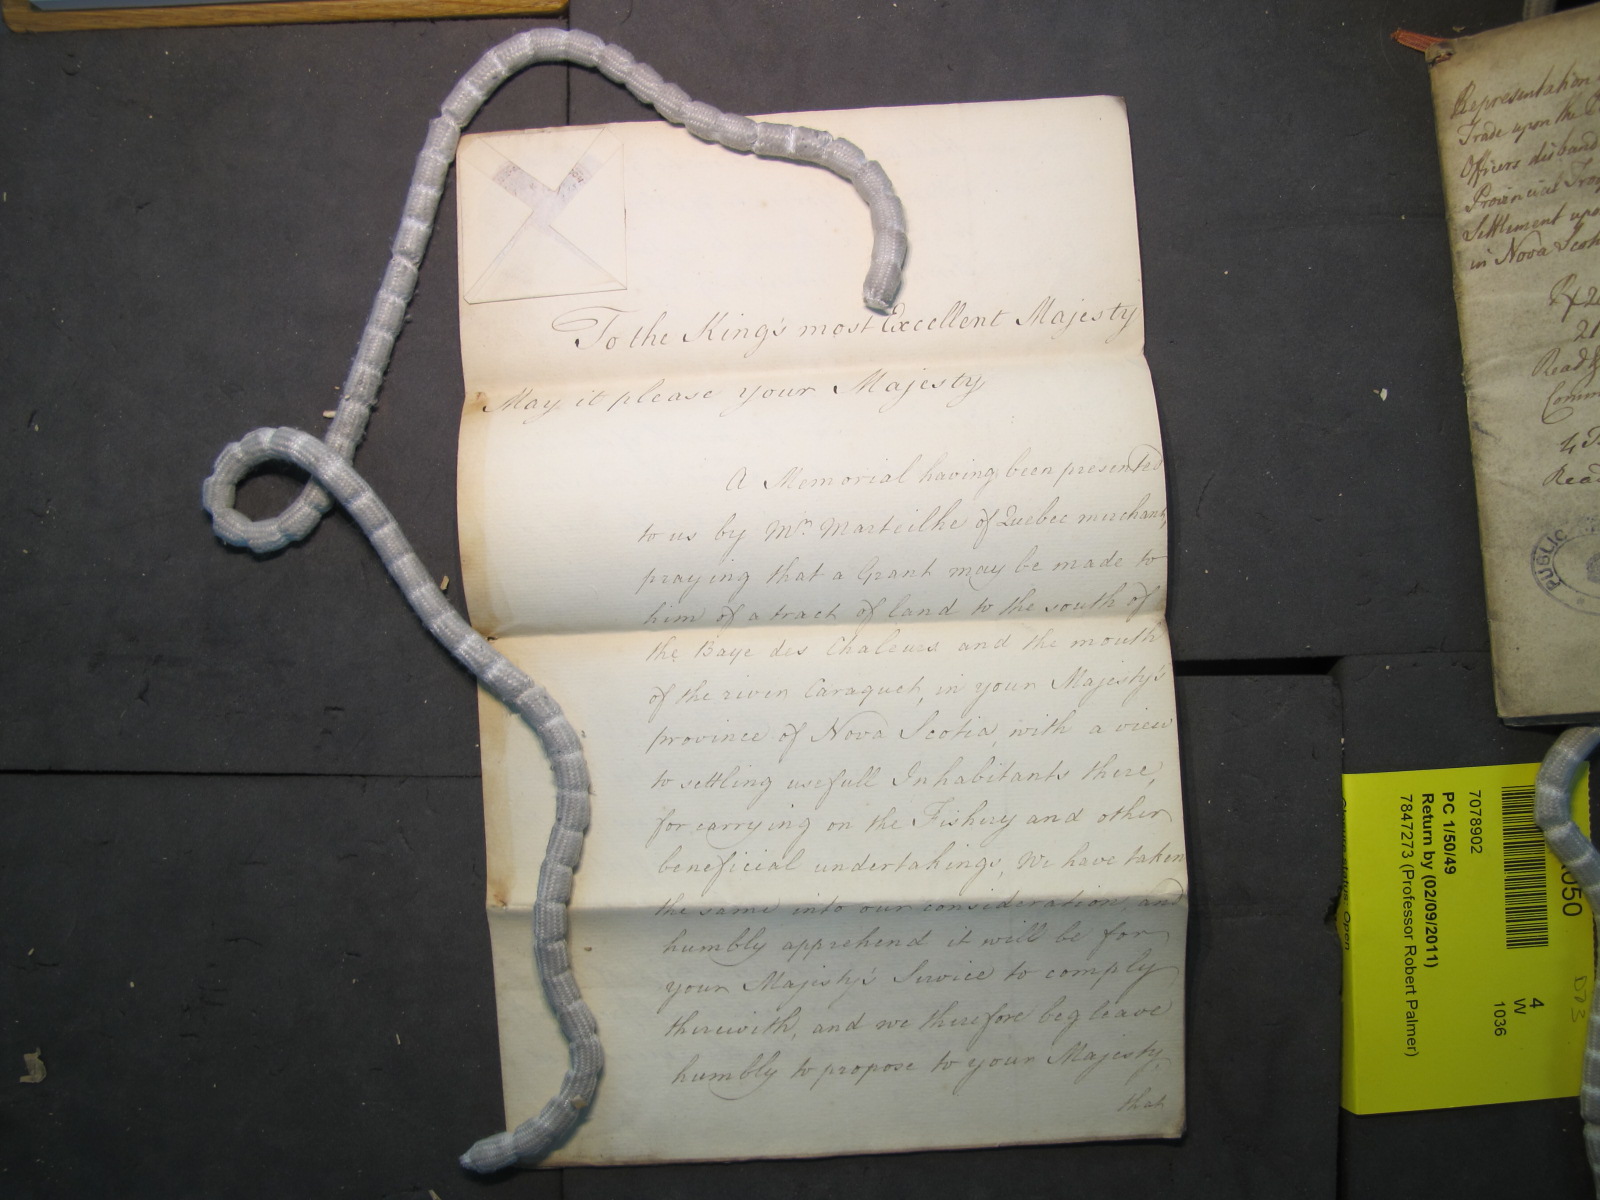 To the King's most Excellent Majesty
May it please your Majesty
A Memorial having been presented
to us by Mr. Marteilhe of Quebec merchant,
praying that a Grant may be made to
him of a tract of land to the south of
the Baye des Chaleurs and the mouth
of the river Caraquet, in your Majesty's
province of Nova Scotia, with a view
to settling usefull Inhabitants there,
for carrying on the Fishery and other
beneficial undertakings, We have taken
the same into our consideration, and
humbly apprehend it will be for
your Majesty's Service to comply
therewith, and we therefore beg leave
humbly to propose to your Majesty,
that
Representation
Trade upon the
Officers disband
Provincial Troo
Settlement upo
in Nova Scoti
21
Read
Comm
Read
PUBLIC
7078902
PC 1/50/49
Return by (02/09/2011)
7847273 (Professor Robert Palmer)
4
W
1036
D23
050
Open